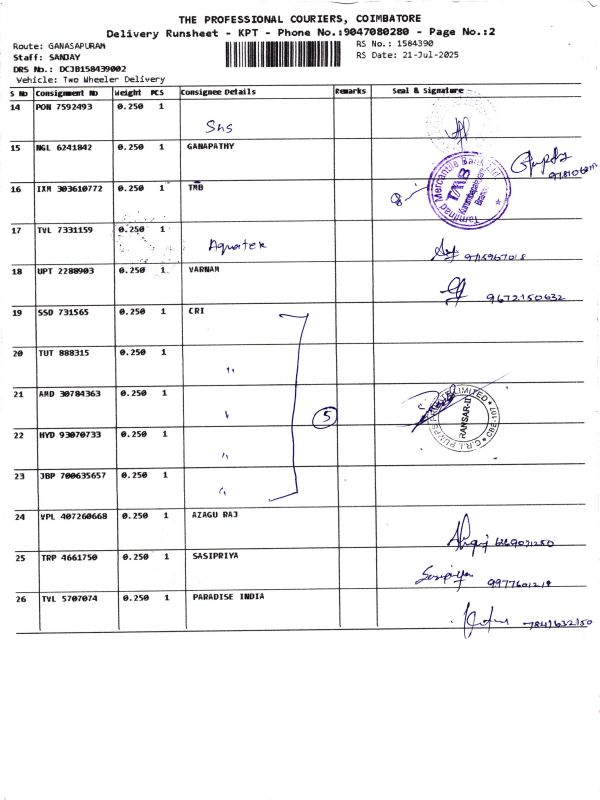 THE PROFESSIONAL COURIERS, COIMBATORE
Delivery Runsheet - KPT - Phone No.:9047080280 - Page No.:2
Route: GANASAPURAM RS No.: 1584390
Staff: SANJAY RS Date: 21-Jul-2025
DRS No.: DCJB158439002
Vehicle: Two Wheeler Delivery
S No Consignment No Weight PCS Consignee Details Remarks Seal & Signature
14 PON 7592493 0.250 1
Shs
15 NGL 6241842 0.250 1 GANAPATHY
16 IXM 303610772 0.250 1 TMB
Tamilnad Mercantile Bank Ltd.
TMB
17 TVL 7331159 0.250 1
Aquatek
18 UPT 2288903 0.250 1 VARNAM
9672150632
19 SSD 731565 0.250 1 CRI
20 TUT 888315 0.250 1
"
21 AMD 30784363 0.250 1
"
5
22 HYD 93070733 0.250 1
"
23 JBP 700635657 0.250 1
"
24 VPL 407260668 0.250 1 AZAGU RAJ
25 TRP 4661750 0.250 1 SASIPRIYA
Sasipriya 9977601218
26 TVL 5707074 0.250 1 PARADISE INDIA
7841632150